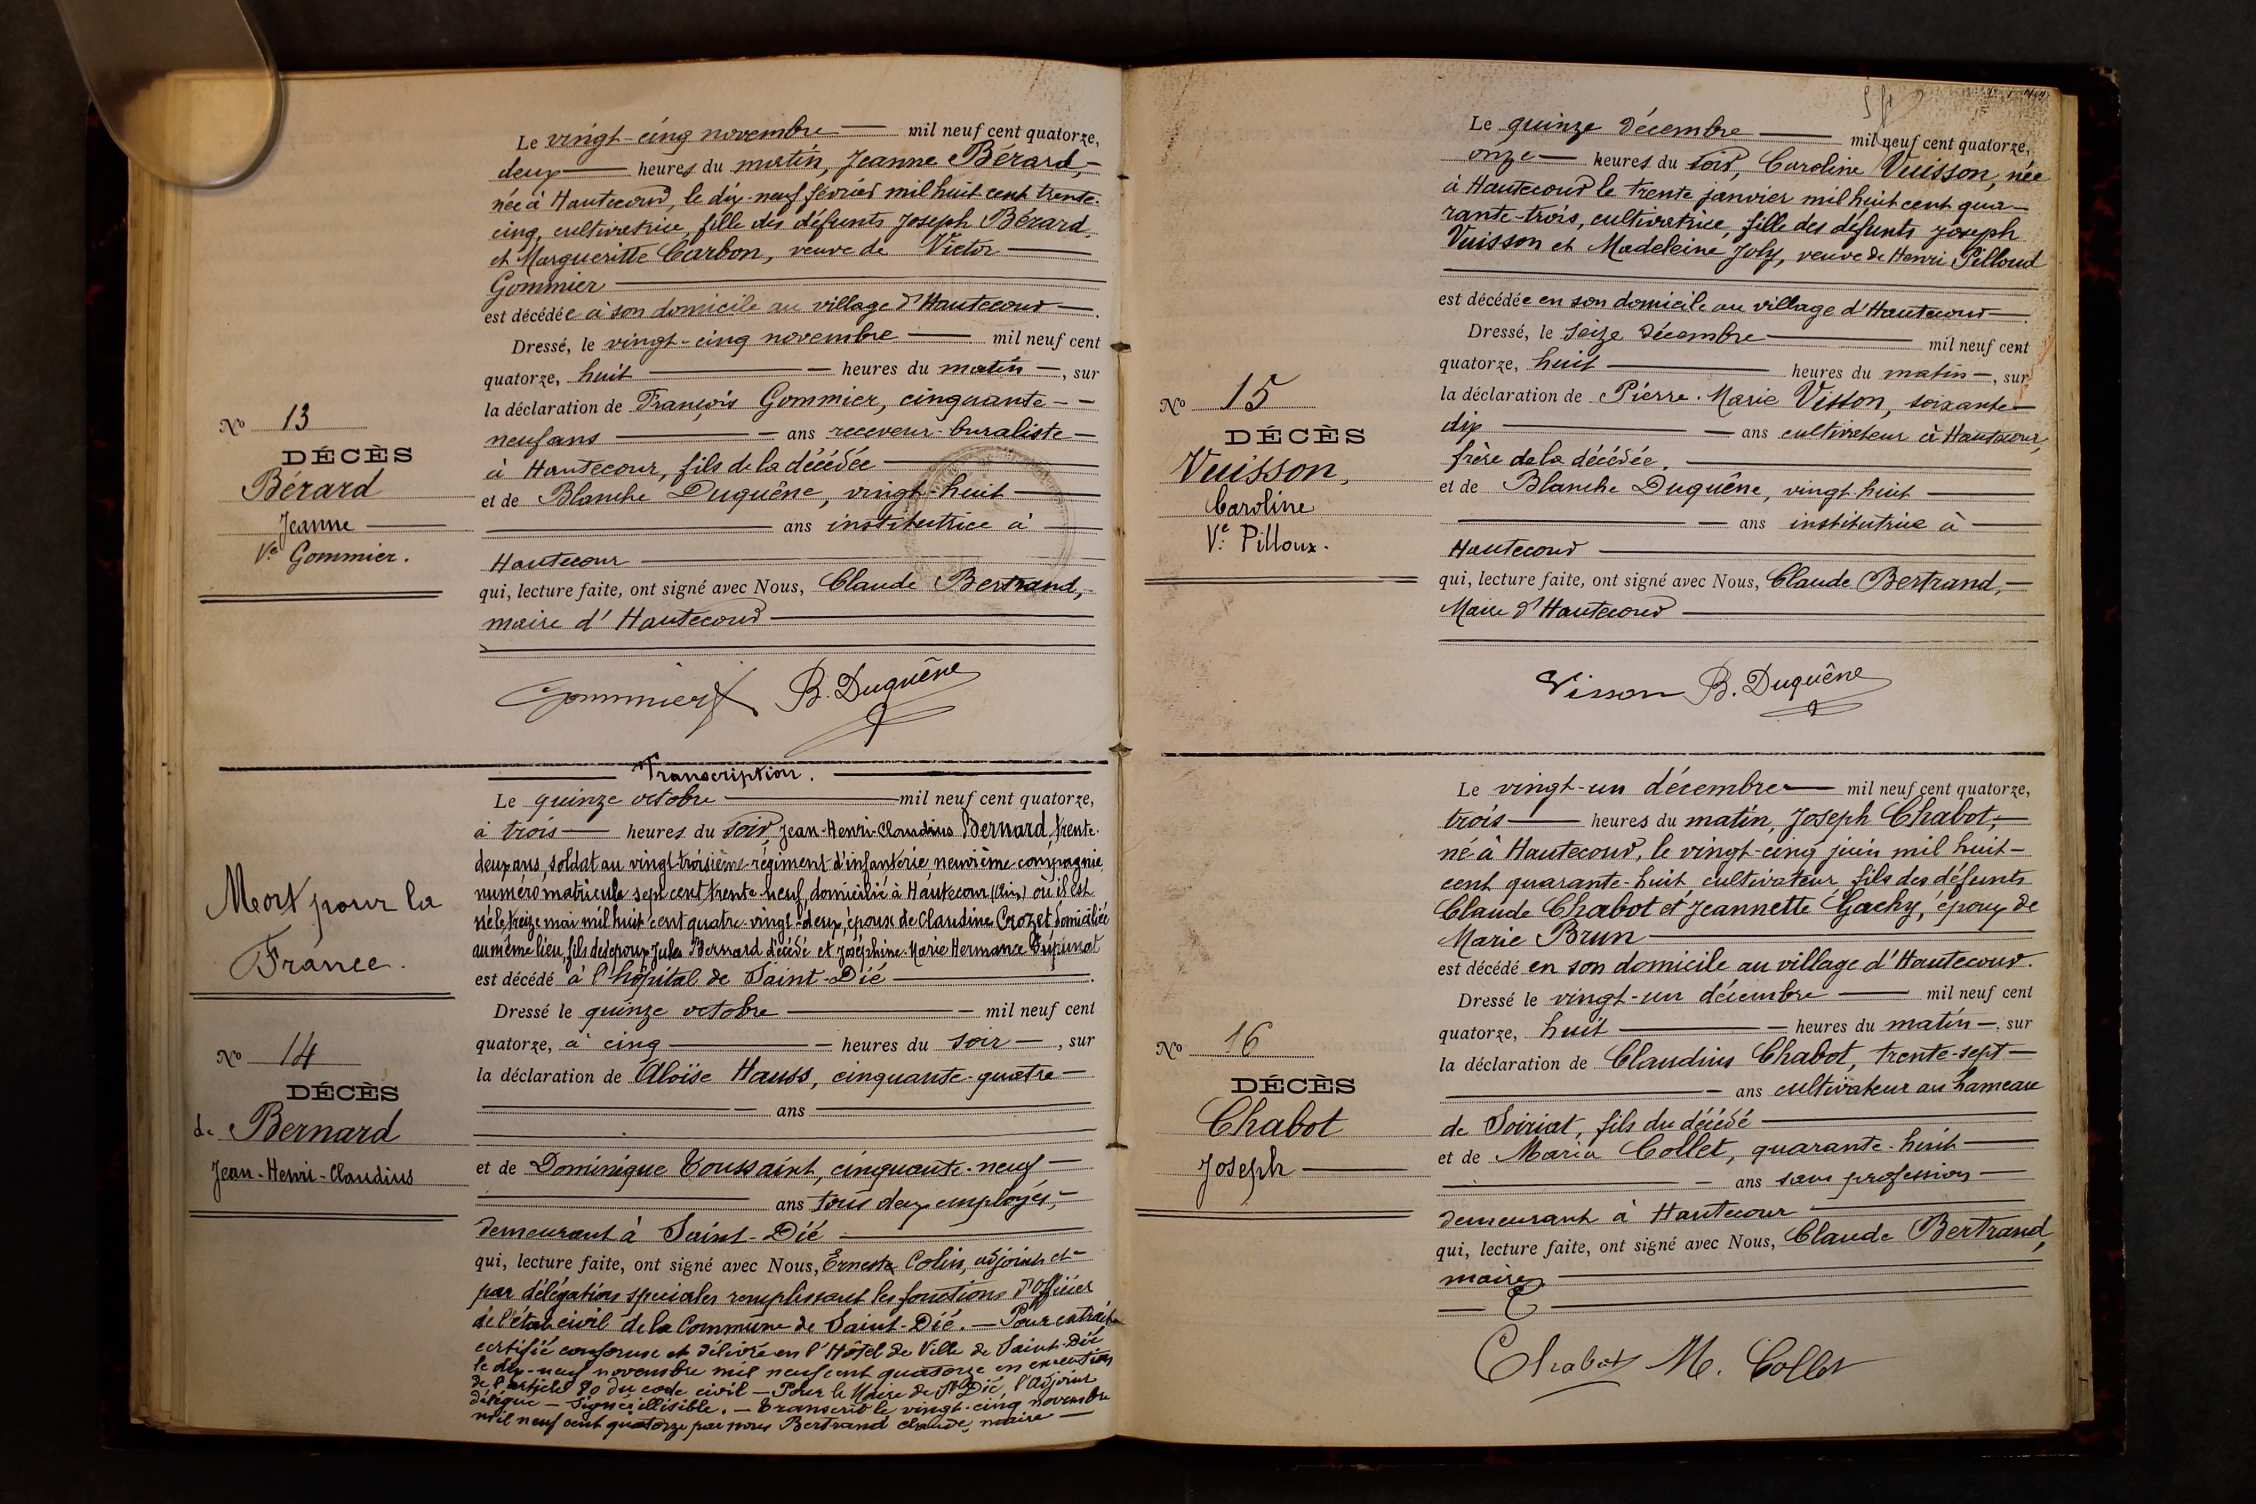 Le vingt-cinq novembre — mil neuf cent quatorze,
deux — heures du matin, Jeanne Bérard, —
née à Hautecour, le dix-neuf février mil huit cent trente-
cinq, cultivatrice, fille des défunts Joseph Bérard
et Margueritte Carbon, veuve de Victor —
Gommier —
est décédée à son domicile au village d'Hautecour —.
Dressé, le vingt-cinq novembre — mil neuf cent
quatorze, huit — heures du matin —, sur
la déclaration de François Gommier, cinquante-
neuf ans — ans receveur-buraliste —
à Hautecour, fils de la décédée —
et de Blanche Duquêne, vingt-huit —
— ans institutrice à —
Hautecour —
qui, lecture faite, ont signé avec Nous, Claude Bertrand, —
maire d'Hautecour —
Gommier B. Duquêne
No 13
DÉCÈS
Bérard
Jeanne —
Ve Gommier.
— Transcription. —
Le quinze octobre — mil neuf cent quatorze,
à trois — heures du soir, Jean-Henri-Claudius Bernard, trente-
deux ans, soldat au vingt-troisième régiment d'infanterie, neuvième compagnie
numéro matricule sept cent trente-neuf, domicilié à Hautecour (Ain) où il est
né le treize mai mil huit cent quatre-vingt-deux, époux de Claudine Crozet domiciliée
au même lieu, fils des époux Jules Bernard décédé et Joséphine-Marie Hermance
est décédé à l'hôpital de Saint-Dié —.
Dressé le quinze octobre — mil neuf cent
quatorze, à cinq — heures du soir —, sur
la déclaration de Aloïse Hauss, cinquante-quatre —
— ans —
et de Dominique Toussaint, cinquante-neuf —
— ans tous deux employés, —
demeurant à Saint-Dié —
qui, lecture faite, ont signé avec Nous, Ernest Colin, adjoint et
par délégation spéciales remplissant les fonctions d'officier
de l'état civil de la Commune de Saint-Dié. — Pour extrait
certifié conforme et délivré en l'Hôtel de Ville de Saint-Dié
le dix-neuf novembre mil neuf cent quatorze en exécution
de l'article 80 du code civil — Pour le Maire de St Dié, l'adjoint
délégué — Signé illisible. — Transcrit le vingt-cinq novembre
mil neuf cent quatorze par nous Bertrand Claude, maire —
Mort pour la
France.
No 14
DÉCÈS
de Bernard
Jean-Henri-Claudius
Le quinze décembre — mil neuf cent quatorze,
onze — heures du soir, Caroline Vuisson, née
à Hautecour le trente janvier mil huit cent qua-
rante-trois, cultivatrice, fille des défunts Joseph
Vuisson et Madeleine Joly, veuve de Henri Pilloud
est décédée en son domicile au village d'Hautecour —.
Dressé, le seize décembre — mil neuf cent
quatorze, huit — heures du matin —, sur
la déclaration de Pierre-Marie Visson, soixante-
dix — ans cultivateur à Hautecour,
frère de la décédée. —
et de Blanche Duquêne, vingt-huit —
— ans institutrice à —
Hautecour —
qui, lecture faite, ont signé avec Nous, Claude Bertrand, —
Maire d'Hautecour —
Visson B. Duquêne
No 15
DÉCÈS
Vuisson,
Caroline
Ve Pilloux.
Le vingt-un décembre — mil neuf cent quatorze,
trois — heures du matin, Joseph Chabot, —
né à Hautecour, le vingt-cinq juin mil huit-
cent quarante-huit cultivateur fils des défunts
Claude Chabot et Jeannette Gachy, époux de
Marie Brun —
est décédé en son domicile au village d'Hautecour.
Dressé le vingt-un décembre — mil neuf cent
quatorze, huit — heures du matin —, sur
la déclaration de Claudius Chabot, trente-sept —
— ans cultivateur au hameau
de Soiriat, fils du décédé —
et de Maria Collet, quarante-huit —
— ans sans profession —
demeurant à Hautecour —
qui, lecture faite, ont signé avec Nous, Claude Bertrand,
maire —
Chabot M. Collet
No 16
DÉCÈS
Chabot
Joseph —